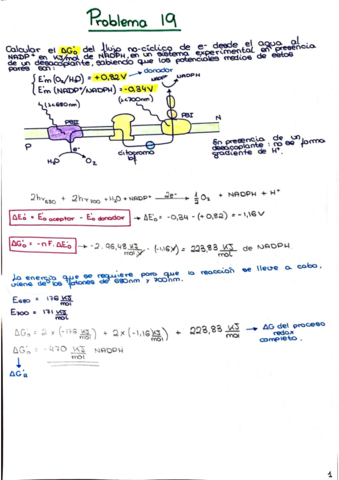 Problema 19
Calcular el ΔG'o del flujo no-cíclico de e- desde el agua al
NADP+ en KJ/mol de NADPH, en un sistema experimental en presencia
de un desacoplante, sabiendo que los potenciales medios de estos
pares son:
E'm (O2/H2O) = +0,82V → donador
E'm (NADP+/NADPH) = -0,34V
NADP+ NADPH
(λ=680nm)
(λ=700nm)
PSII
PSI
N
P
e-
H2O
O2
citocromo
b6f
En presencia de un
desacoplante: no se forma
gradiente de H+.
2hγ680 + 2hγ700 + H2O + NADP+ 2e-→ ½O2 + NADPH + H+
ΔE'o = E'o aceptor - E'o donador → ΔE'o = -0,34 - (+0,82) = -1,16V
ΔG'o = -nF.ΔE'o → -2.96,48 KJ/mol.V . (-1,16V) = 223,83 KJ/mol de NADPH
La energía que se requiere para que la reacción se lleve a cabo,
viene de los fotones de 680nm y 700nm.
E680 = 176 KJ/mol
E700 = 171 KJ/mol
ΔG'o = 2 x (-176 KJ/mol) + 2 x (-1,16) KJ/mol + 223,83 KJ/mol → ΔG del proceso
redox
completo.
ΔG'o = -470 KJ/mol NADPH
1